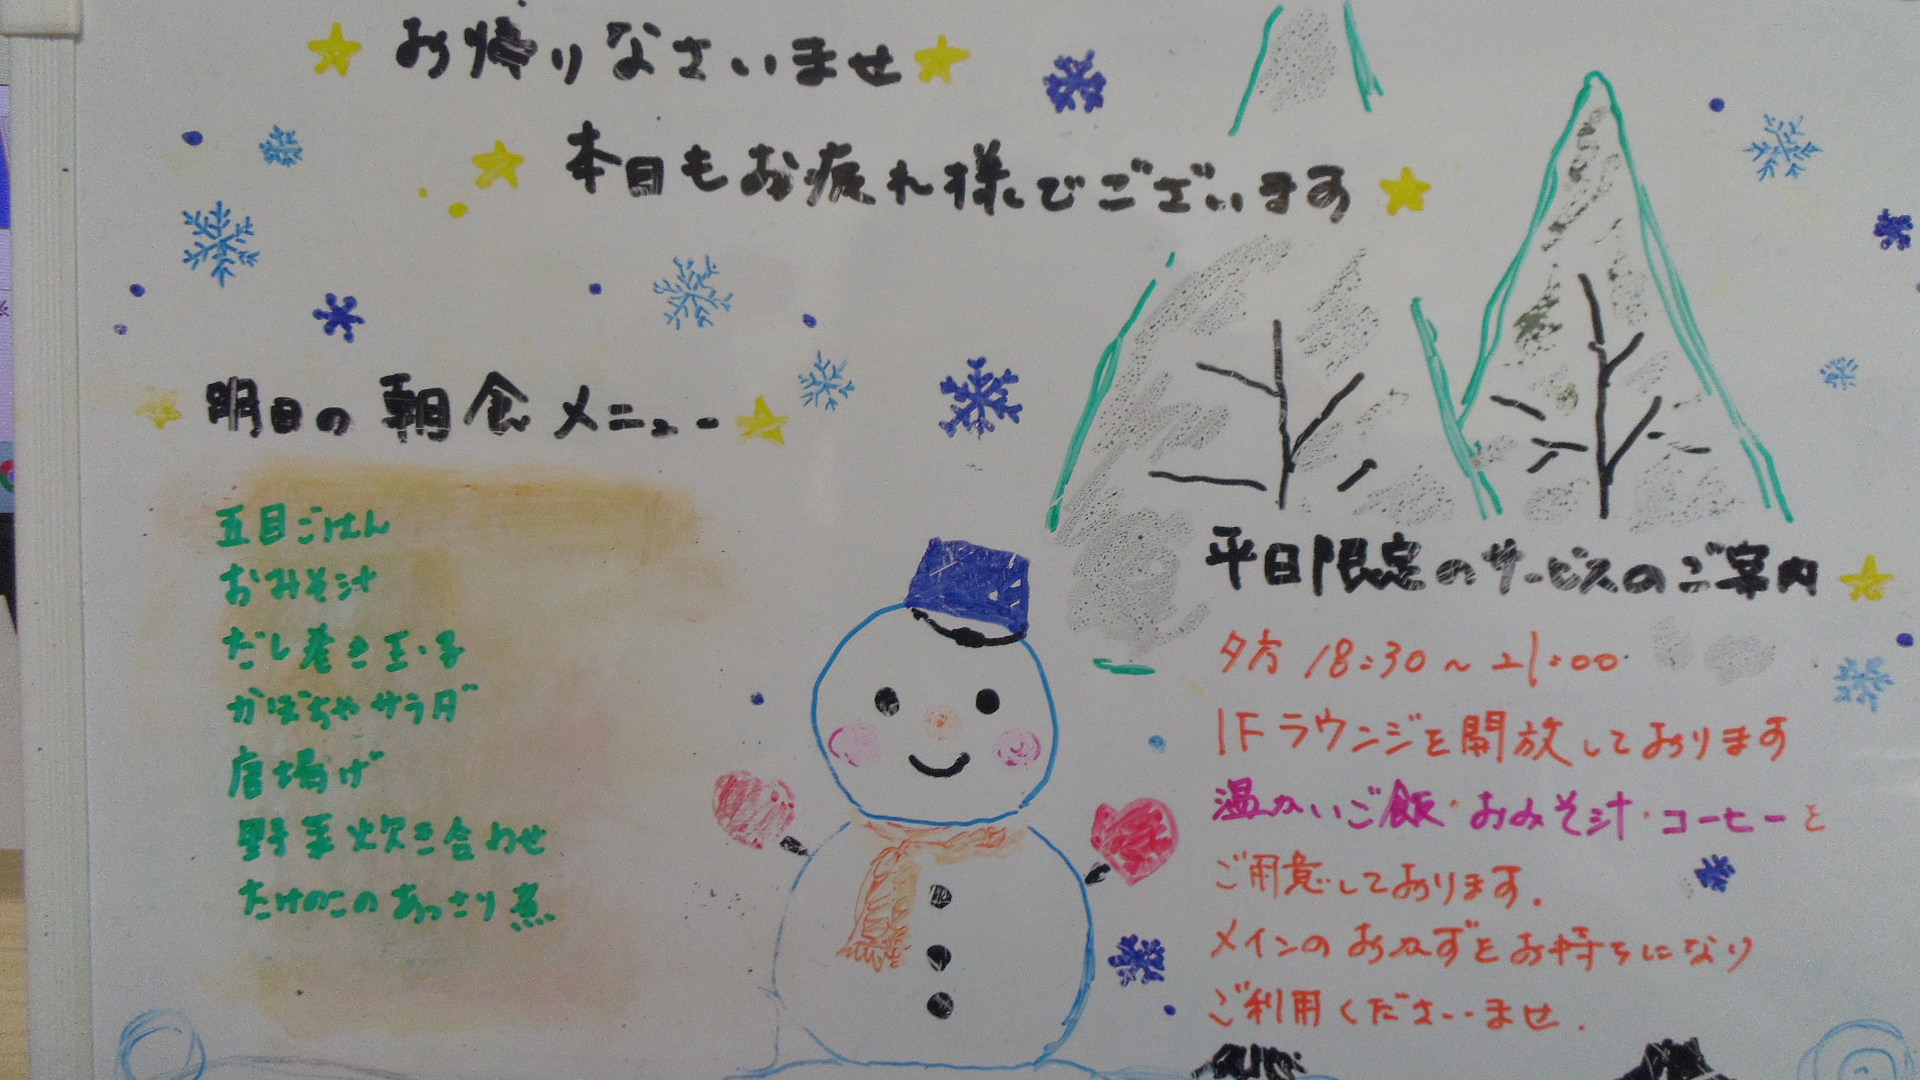 お帰りなさいませ
本日もお疲れ様でございます
明日の朝食メニュー
五目ごはん
おみそ汁
だし巻き玉子
かぼちゃサラダ
唐揚げ
野菜炊き合わせ
たけのこのあっさり煮
平日限定のサービスのご案内
夕方 18:30~21:00
1Fラウンジを開放しております
温かいご飯・おみそ汁・コーヒーを
ご用意しております.
メインのおかずをお持ちになり
ご利用くださいませ.